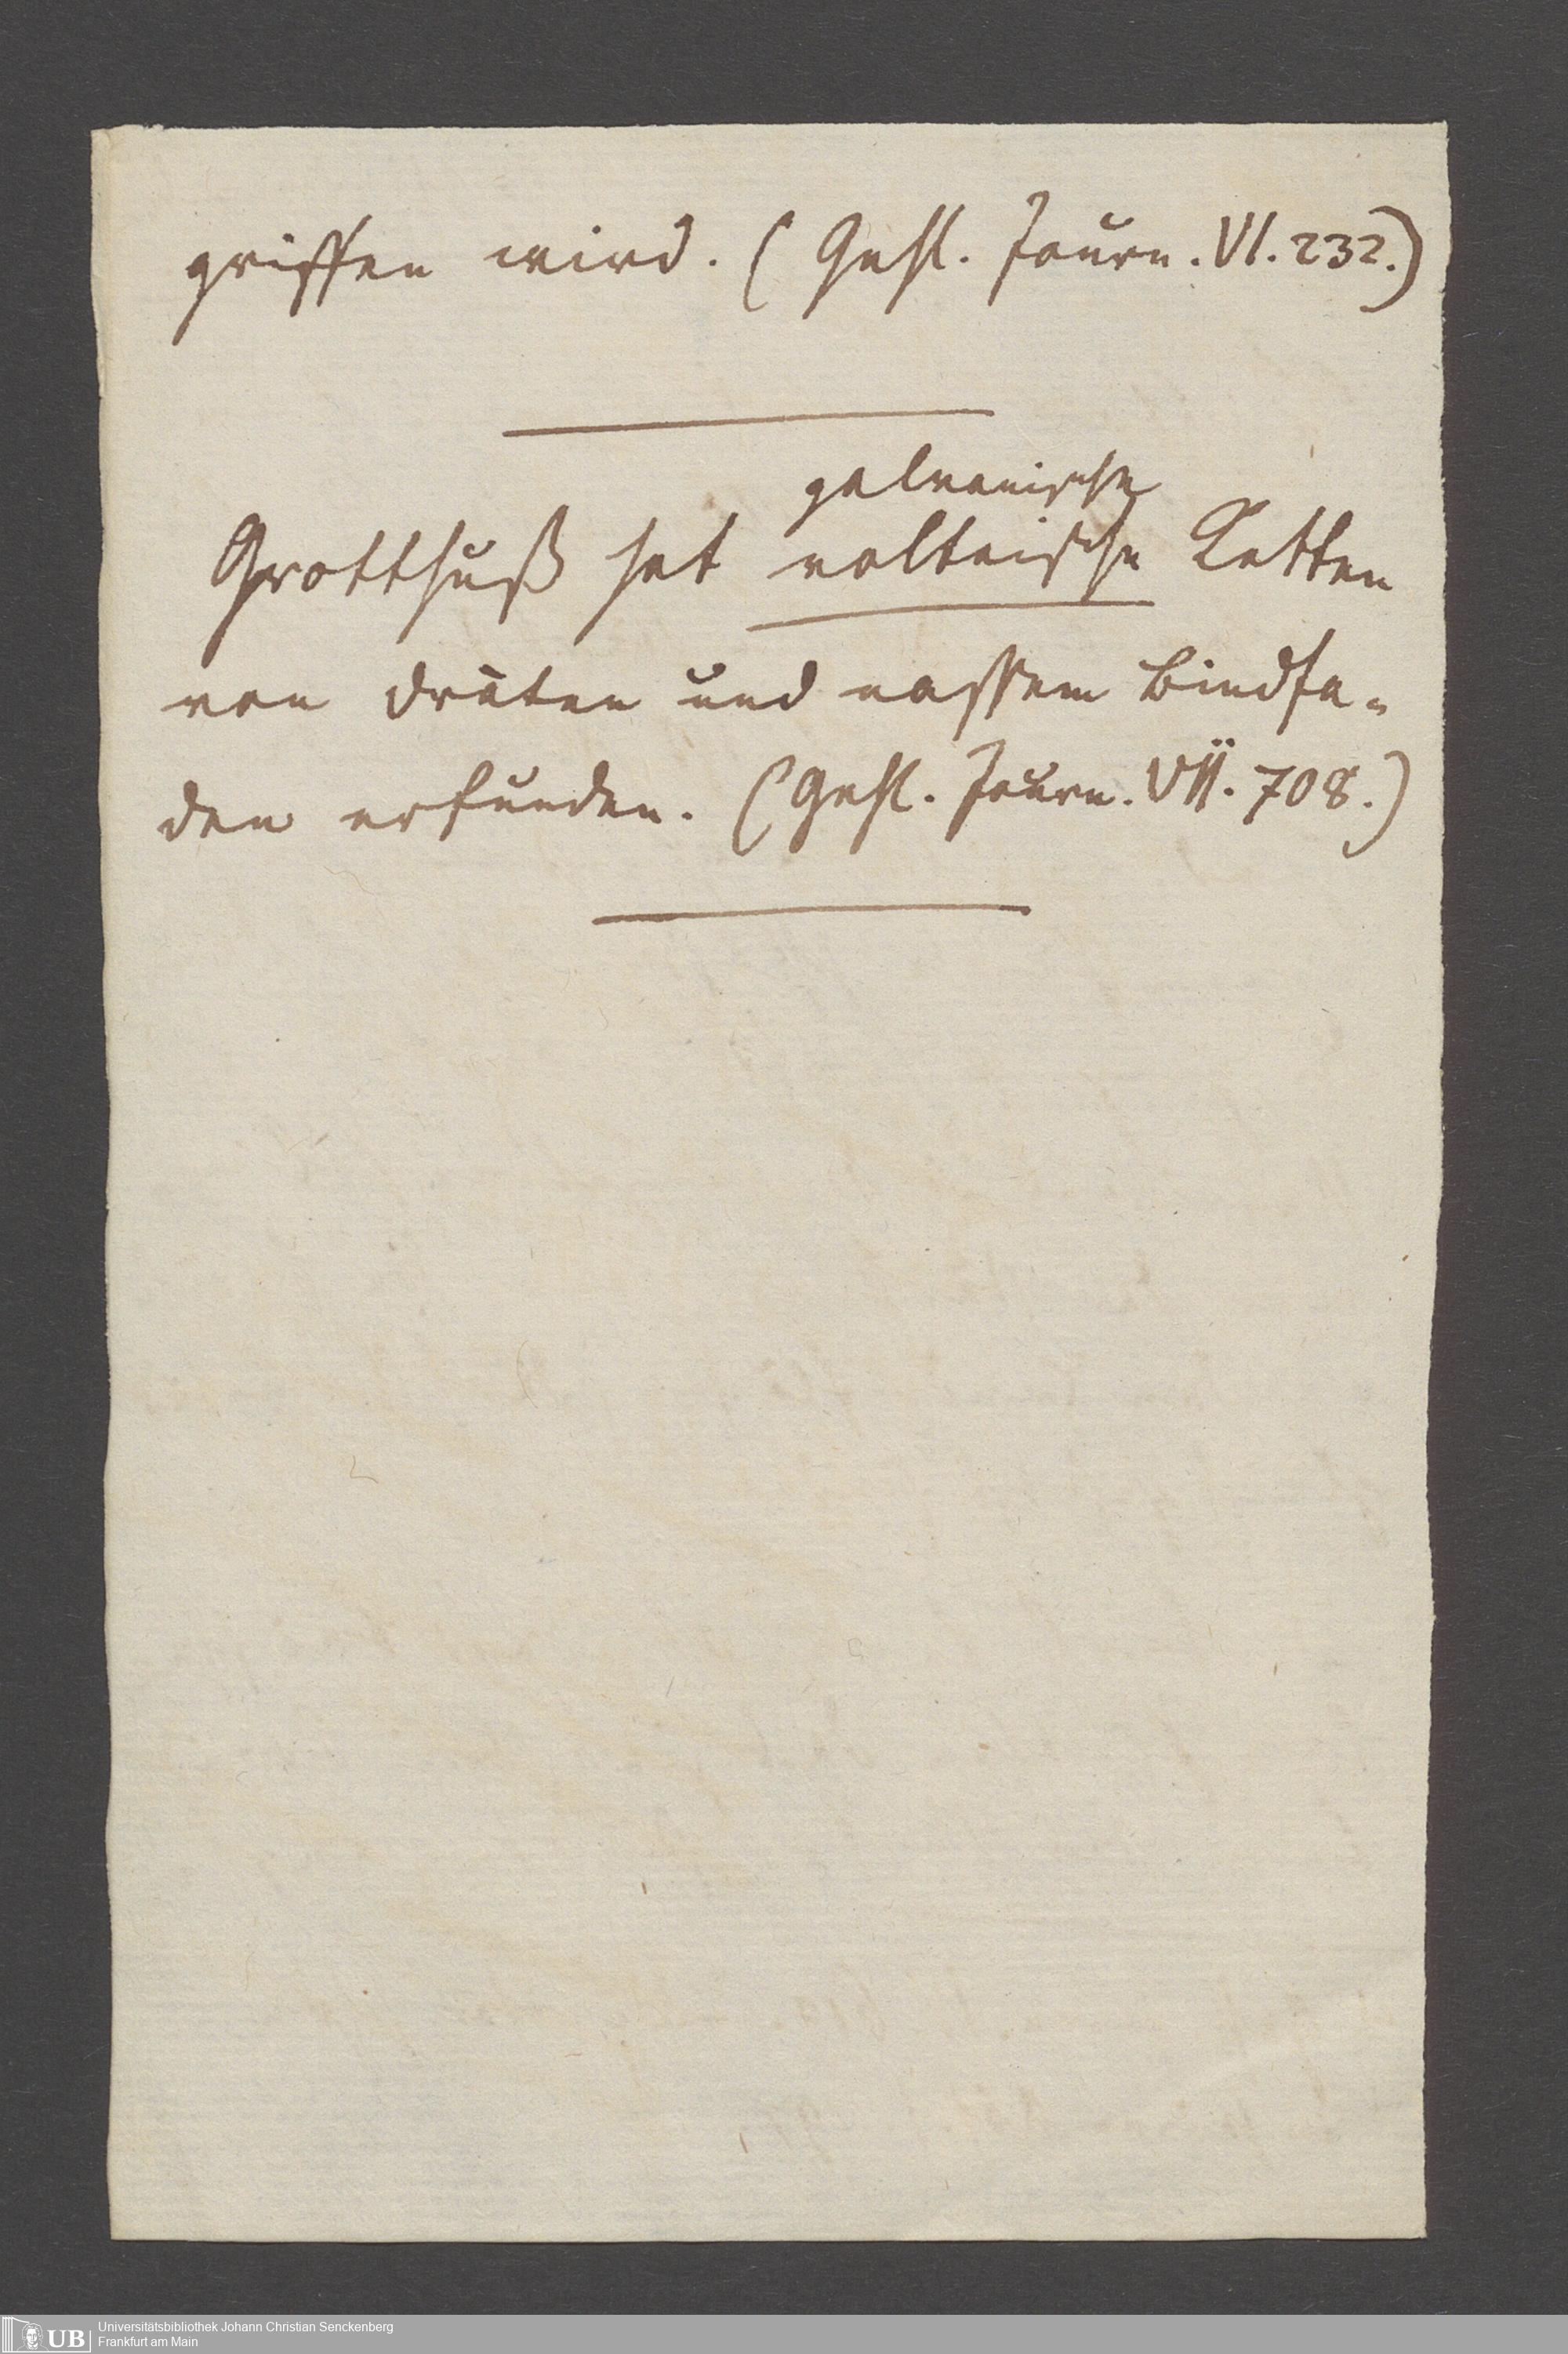 griffen wird. (Gehl. Journ. VI. 232.)
galvanische
Grotthuß hat voltaische Ketten
von Dräten und nassem Bindfa-
den erfunden. (Gehl. Journ. VII. 708.)
UB
Universitätsbibliothek Johann Christian Senckenberg
Frankfurt am Main